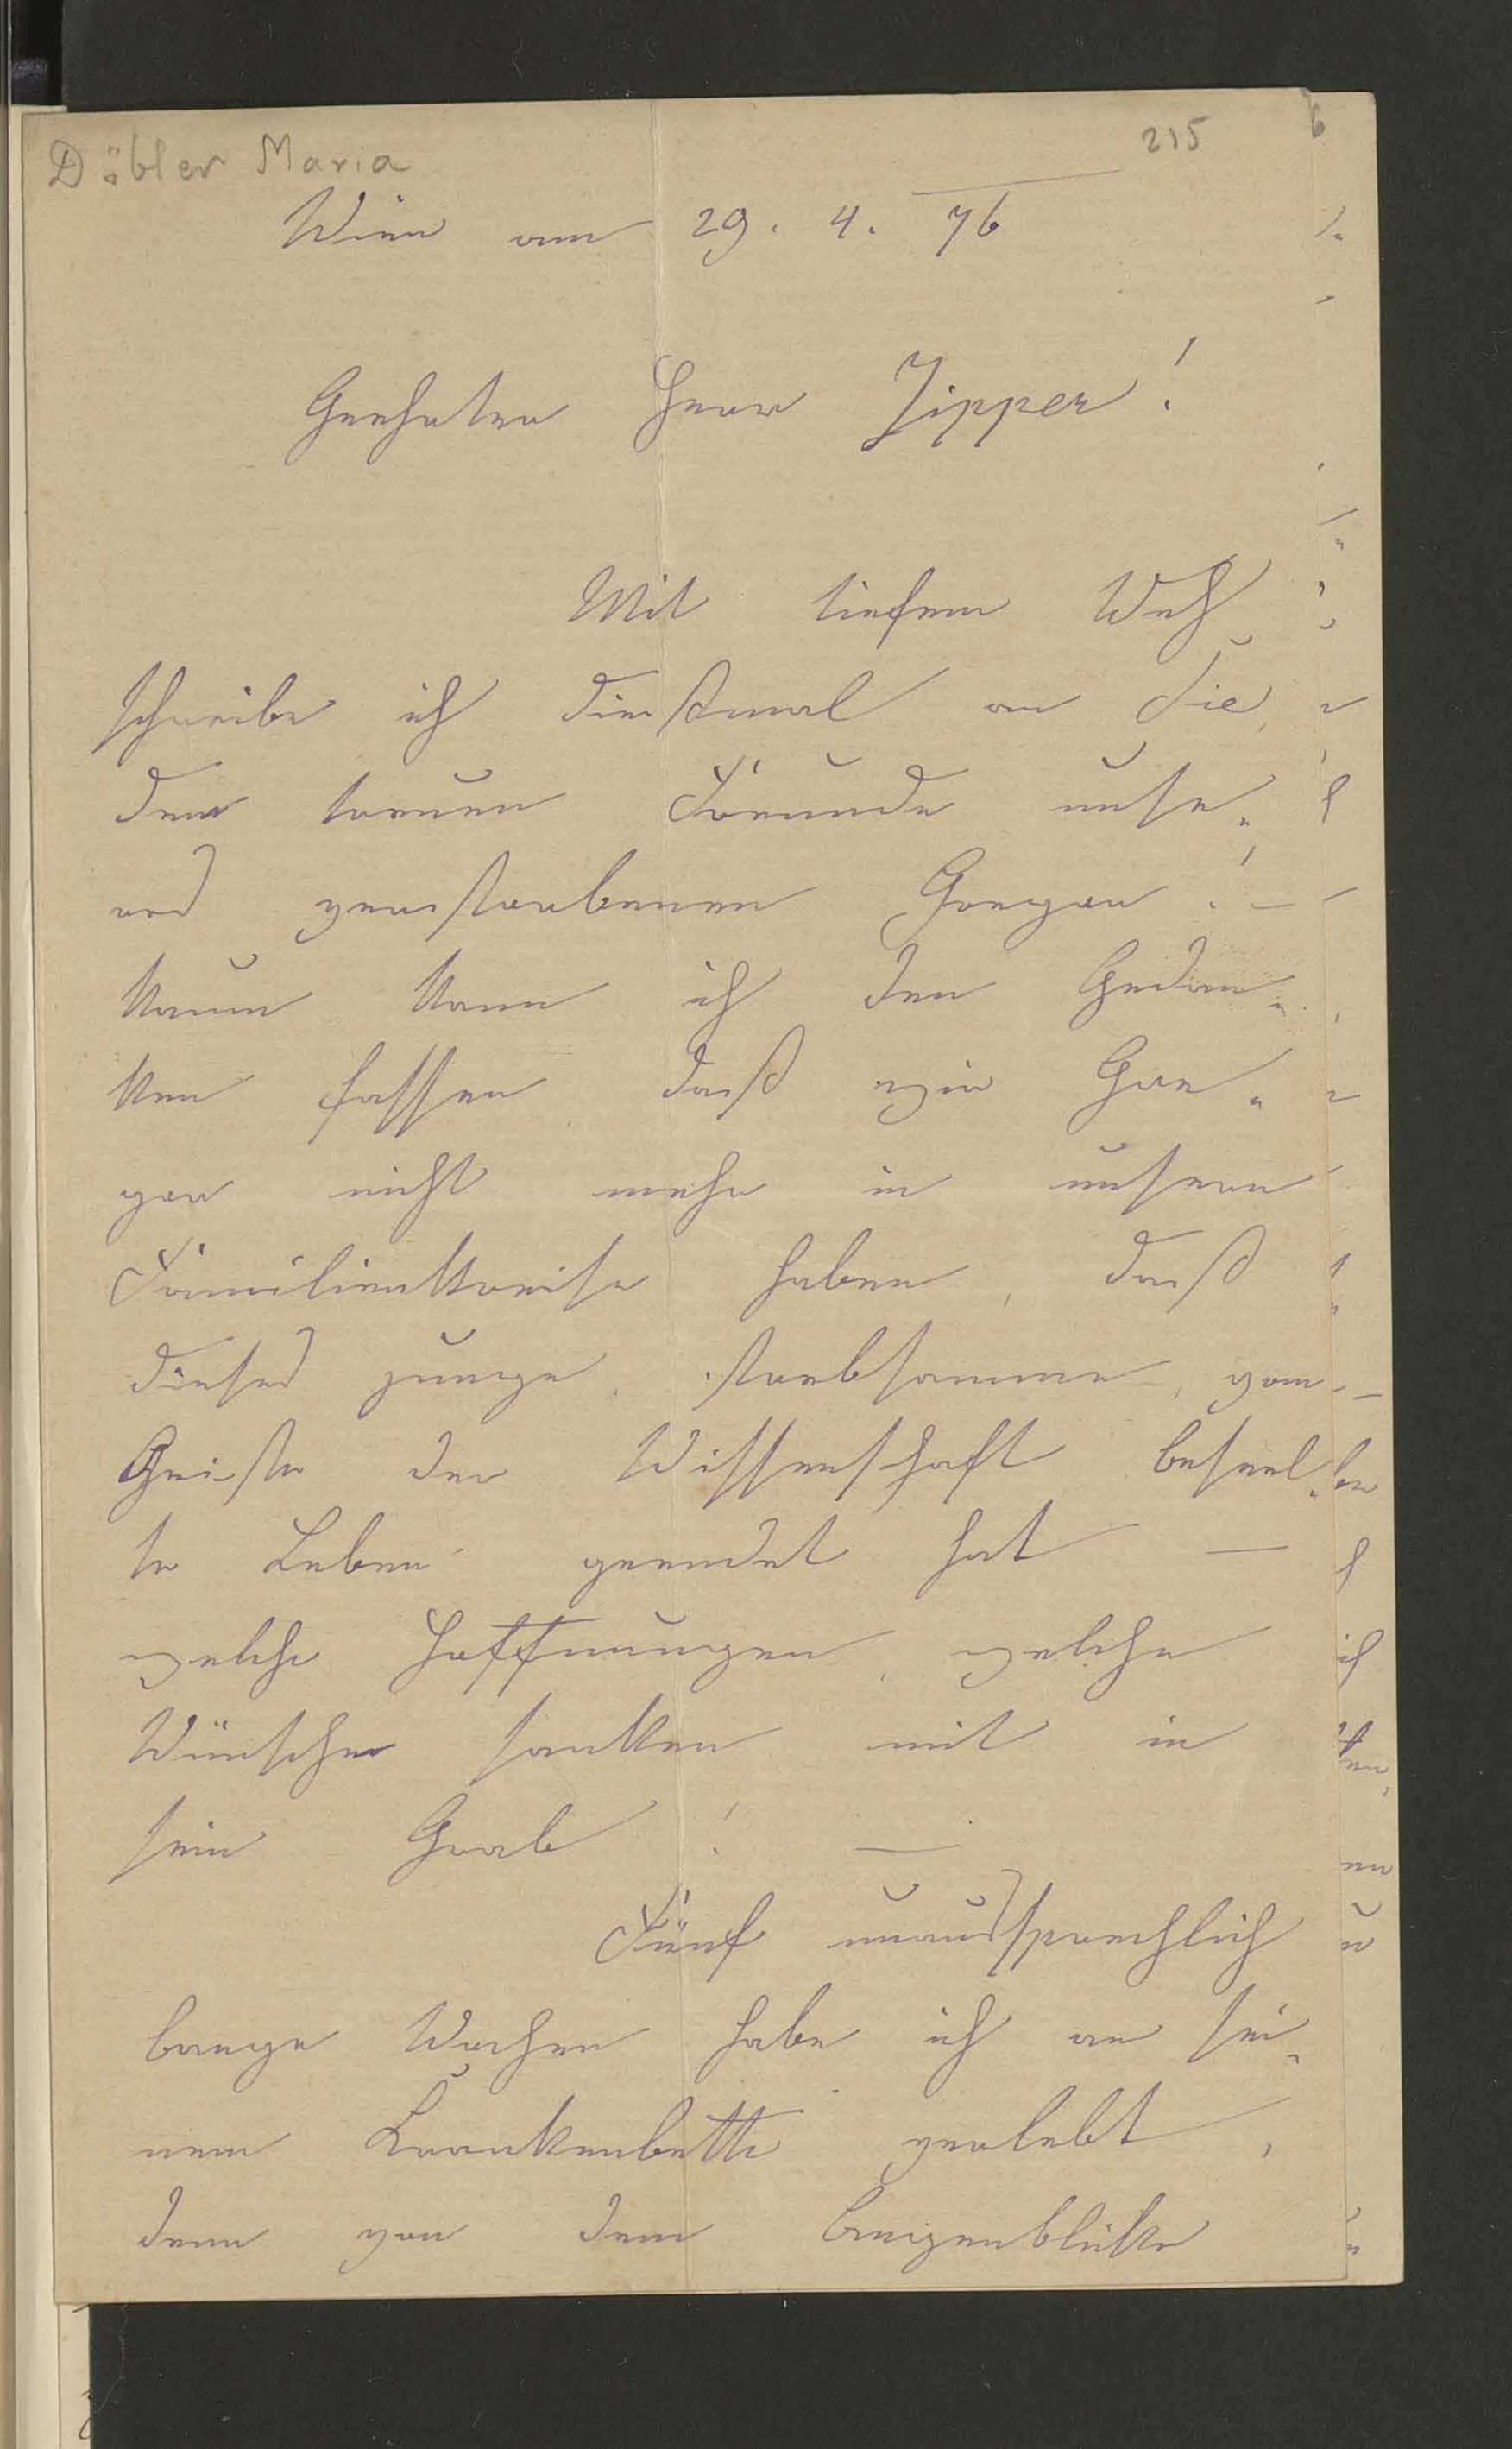 Döbler Maria
215
6
Wien am 29. 4. 76
Geehrter Herr Zipper!
Mit tiefem Weh
schreibe ich diesmal an Sie,
dem treuen Freunde unse-
res verstorbenen Gregor! —
Kaum kann ich den Gedan-
ken fassen, daß wir Gre-
gor nicht mehr in unserm
Familienkreise haben, daß
dieses junge, strebsamme, vom
Geiste der Wissenschaft beseel-
te Leben geendet hat —
welche Hoffnungen, welche
Wünsche sanken mit in
sein Grab! —
Fünf unaussprechlich
bange Wochen habe ich an sei-
nem Krankenbette verlebt,
denn von dem Augenblicke